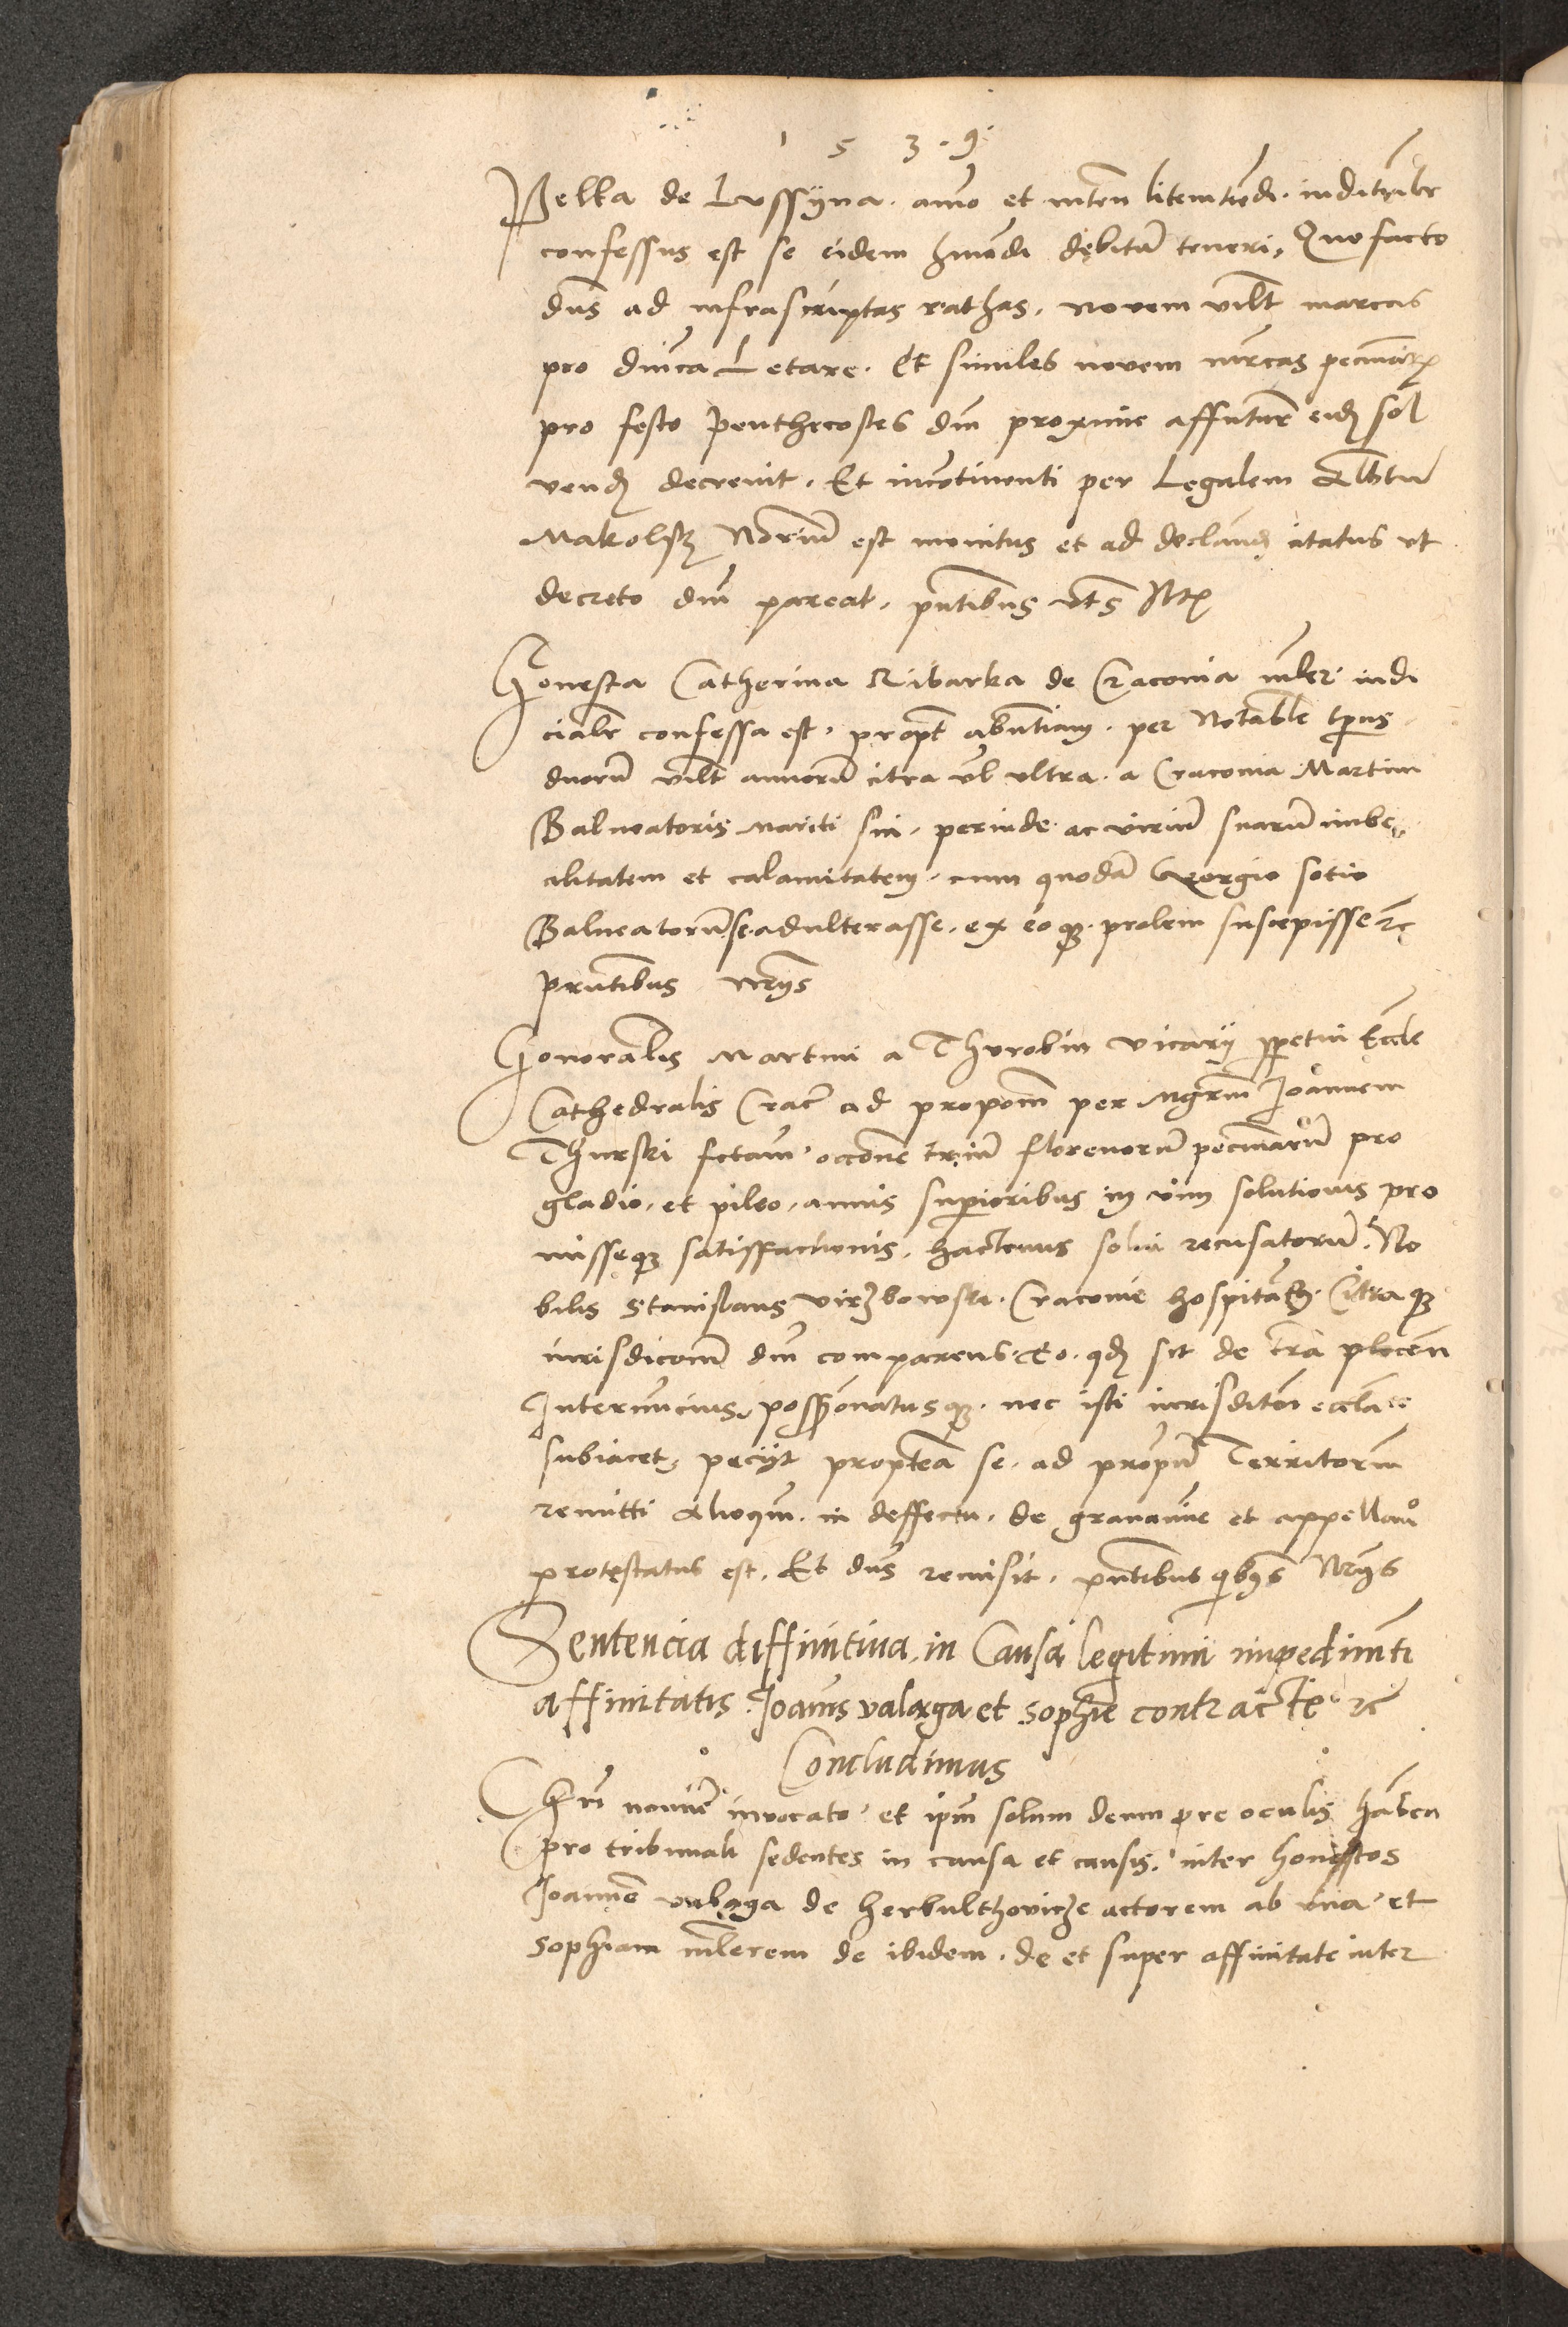 1 5 3 · 9 ·
Pelka de Lussyna. animo et litem iudicialr
confessus est se eidem hmodi debitum teneri, Quo facto
dns ad infrascriptas rathas. novem vilt marcas
pro dnica Letare. Et similes novem mrcas
pro festo Penthecostes dni proxime affutur eid sol
vend decrevit. Et incontinenti per Legalem Albtu
Makolsk est monitus et ad citatus vt
decreto dni pareat. pntibus
Honesta Catherina Ribarka de Cracovia mler iudi
cialr confessa est. propt absentiam. per Notable tpus
duoru vilt annoru citra vl vltra. a Cracovia Martini
Balneatoris mariti sui. perinde ac viriu suaru imbe
cilitatem et calamitatem. cum quoda Georgio sotio
Balneatoru se adulterasse. ex eoq prolem suscepisse rc
Prntibus
Honorablis Martini a Thurobin vicarij ppetui Eccle
Cathedralis Crac ad proponm per Mgrm Joannem
Thurski fctam occone triu florenoru pecuniaru pro
gladio. et pileo. annis superioribus in vim solutionis pro
misseq satisffactionis. hactenus solvi recusatoru. No
bilis Stanislaus Virzbowski. Cracovie hospitan Citraq
iurisdiconm dni comparens qd sit de tra plocen
Internuncius, possessionatusq. nec isti
subiacet, peciit proptea se. ad propriu Territorm
remitti alioqn. in deffectu. de gravamine et appellan
protestatus est. Et dns remisit. pntibus
Sentencia diffinitiva in Causa legitimi impedimti
affinitatis Joanis valaga et Sophie contracte rc
Concludimus
Chri nomine invocato et ipm solum deum pre oculis haben
pro tribunali sedentes in causa et causis. inter honestos
Joanne valaga de herbulthovicze actorem ab vna et
Sophiam mlerem de ibidem. de et super affinitate inter